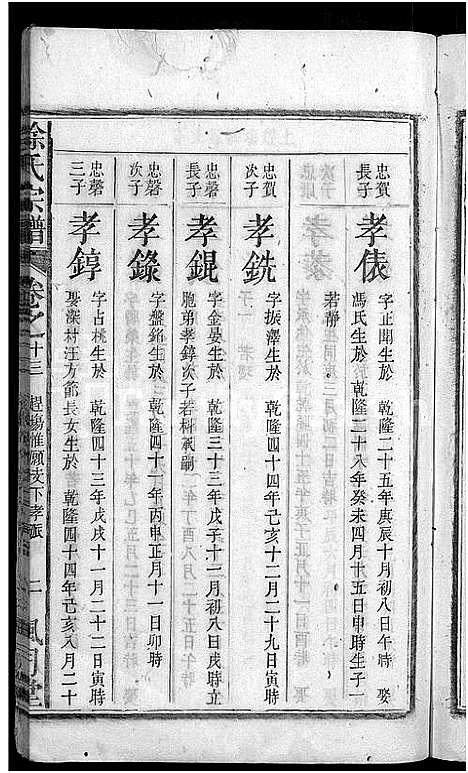 忠賀長子
孝俵
字正開生於 乾隆二十五年庚辰十月初八日午時 娶
馮氏生於 乾隆二十八年癸未四月十五日申時生子一
若靜
忠賀次子
孝銑
字振澤生於 乾隆四十四年己亥十二月二十九日寅時
忠磬長子
孝錕
字金晏生於 乾隆三十三年戊子十一月初八日戌時立
胞弟孝錞次子若 承嗣
忠磬次子
孝錄
字盤銘生於 乾隆四十一年丙申正月十一日卯時
忠磬三子
孝錞
字占桃生於 乾隆四十三年戊戌十一月二十二日寅時
娶深村汪方節長女生於 乾隆四十四年己亥八月二十
徐氏宗譜
卷之十三 趕塲惟願支下孝派 二
風月堂